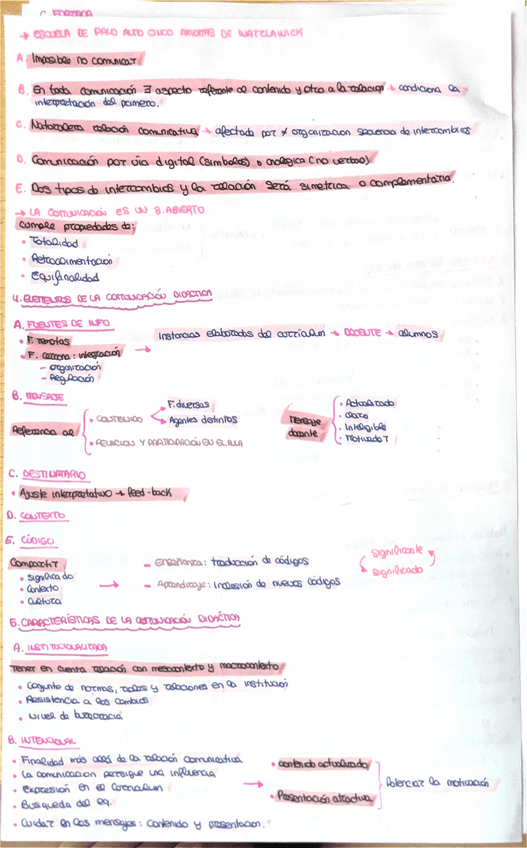 C. FORZADA
→ ESCUELA DE PALO ALTO CINCO AXIOMAS DE WATZLAWICK
A. Imposible no comunicar
B. En toda comunicación ∃ aspecto referente al contenido y otro a la relación → condiciona la
interpretación del primero.
C. Naturaleza relación comunicativa → afectada por ≠ organización secuencia de intercambios
D. Comunicación por vía digital (símbolos) o analógica (no verbal).
E. Dos tipos de intercambios y la relación será simétrica o complementaria.
→ LA COMUNICACIÓN ES UN S. ABIERTO
Cumple propiedades de:
• Totalidad
• Retroalimentación
• Equifinalidad
4. ELEMENTOS DE LA COMUNICACIÓN DIDÁCTICA
A. FUENTES DE INFO
• F. remotas
• F. cercana: integración → Instancias elaboradas del currículum → DOCENTE → alumnos
- organización
- Regulación
B. MENSAJE
Referencia al
• CONTENIDO
F. diversas
Agentes distintos
• RELACIÓN Y PARTICIPACIÓN EN EL AULA
Mensaje docente
• Actualizado
• Claro
• Inteligible
• Motivador
C. DESTINATARIO
• Ajuste interpretativo → feed-back
D. CONTEXTO
E. CÓDIGO
Compartir
• Significado
• Contexto
• Cultura
→
- Enseñanza: traducción de códigos
- Aprendizaje: Inclusión de nuevos códigos
significante
significado
5. CARACTERÍSTICAS DE LA COMUNICACIÓN DIDÁCTICA
A. INSTITUCIONALIZADA
Tener en cuenta relación con mesocontexto y macrocontexto
• Conjunto de normas, roles y relaciones en la institución
• Resistencia a los cambios
• Nivel de burocracia
B. INTENCIONAL
• Finalidad más allá de la relación comunicativa
• La comunicación persigue una influencia
• Expresión en el currículum
• Búsqueda del eq.
• Cuidar en los mensajes: contenido y presentación.
→
• contenido actualizado
• Presentación atractiva
Potenciar la motivación